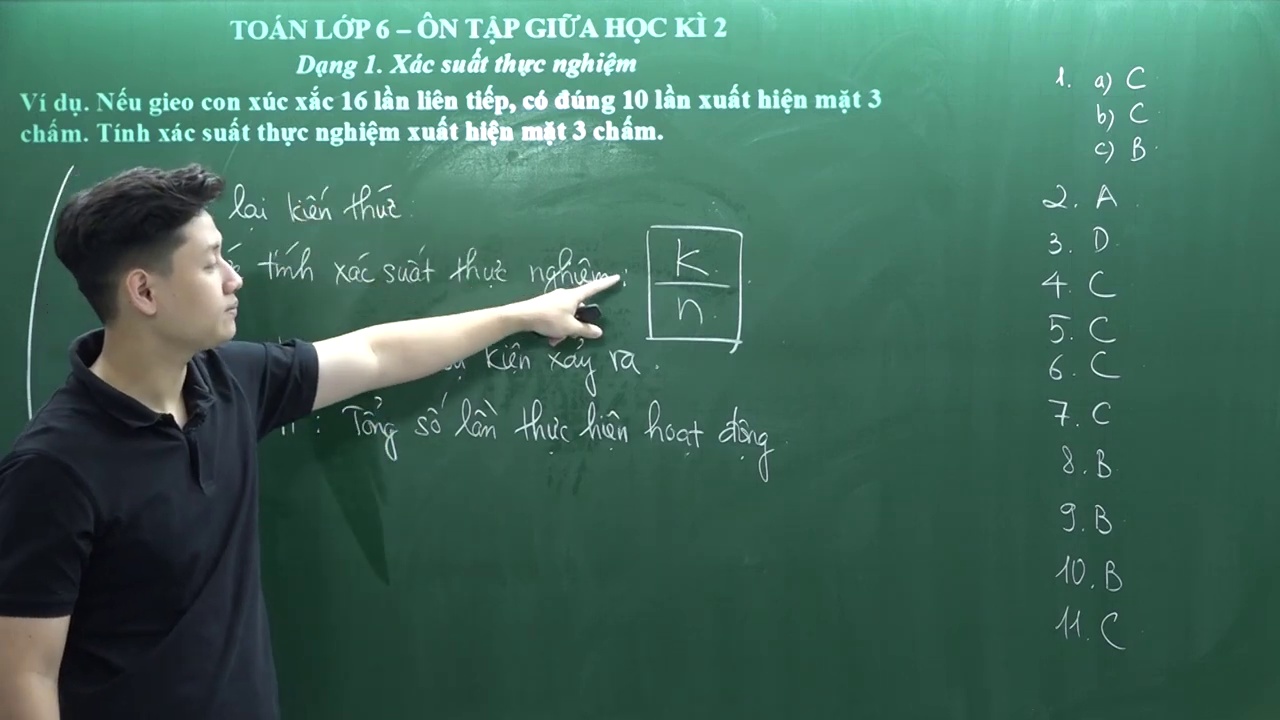 TOÁN LỚP 6 – ÔN TẬP GIỮA HỌC KÌ 2
Dạng 1. Xác suất thực nghiệm
Ví dụ. Nếu gieo con xúc xắc 16 lần liên tiếp, có đúng 10 lần xuất hiện mặt 3
chấm. Tính xác suất thực nghiệm xuất hiện mặt 3 chấm.
lại kiến thức.
tính xác suất thực nghiệm:
k
n
kiện xảy ra.
: Tổng số lần thực hiện hoạt động.
1. a) C
b) C
c) B
2. A
3. D
4. C
5. C
6. C
7. C
8. B
9. B
10. B
11. C